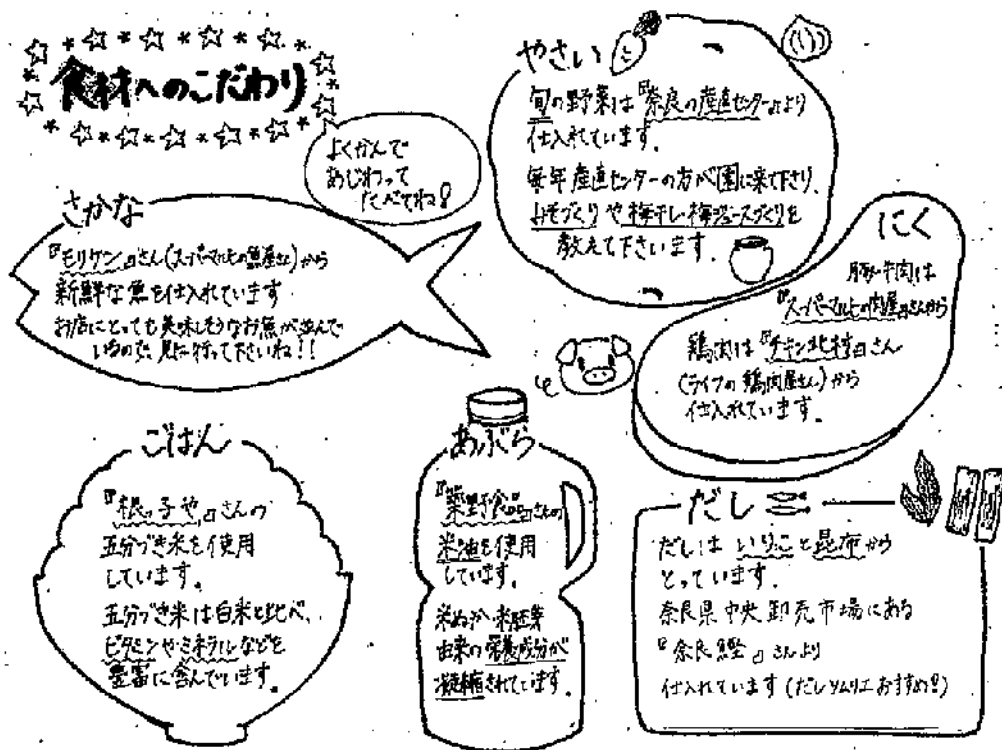 食材へのこだわり
よくかんで
あじわって
たべてね!
やさい
旬の野菜は『奈良の産直センター』より
仕入れています。
毎年産直センターの方が園に来て下さり、
みそづくりや梅干し・梅ジュースづくりを
教えて下さいます。
さかな
『モリケン』さん(スーパーマルヒの魚屋さん)から
新鮮な魚を仕入れています
お店にとっても美味しそうなお魚が並んで
いるので、見に行って下さいね!!
にく
豚・牛肉は
『スーパーマルヒの肉屋』さんから
鶏肉は『チキン北村』さん
(ライフの鶏肉屋さん)から
仕入れています。
ごはん
『根っ子や』さんの
五分づき米を使用
しています。
五分づき米は白米と比べ、
ビタミンやミネラルなどを
豊富に含んでいます。
あぶら
『築野食品』さんの
米油を使用
しています。
米ぬか・米胚芽
由来の栄養成分が
凝縮されています。
だし
だしは いりこと昆布から
とっています.
奈良県中央卸売市場にある
『奈良鰹』さんより
仕入れています(だしソムリエおすすめ!!)